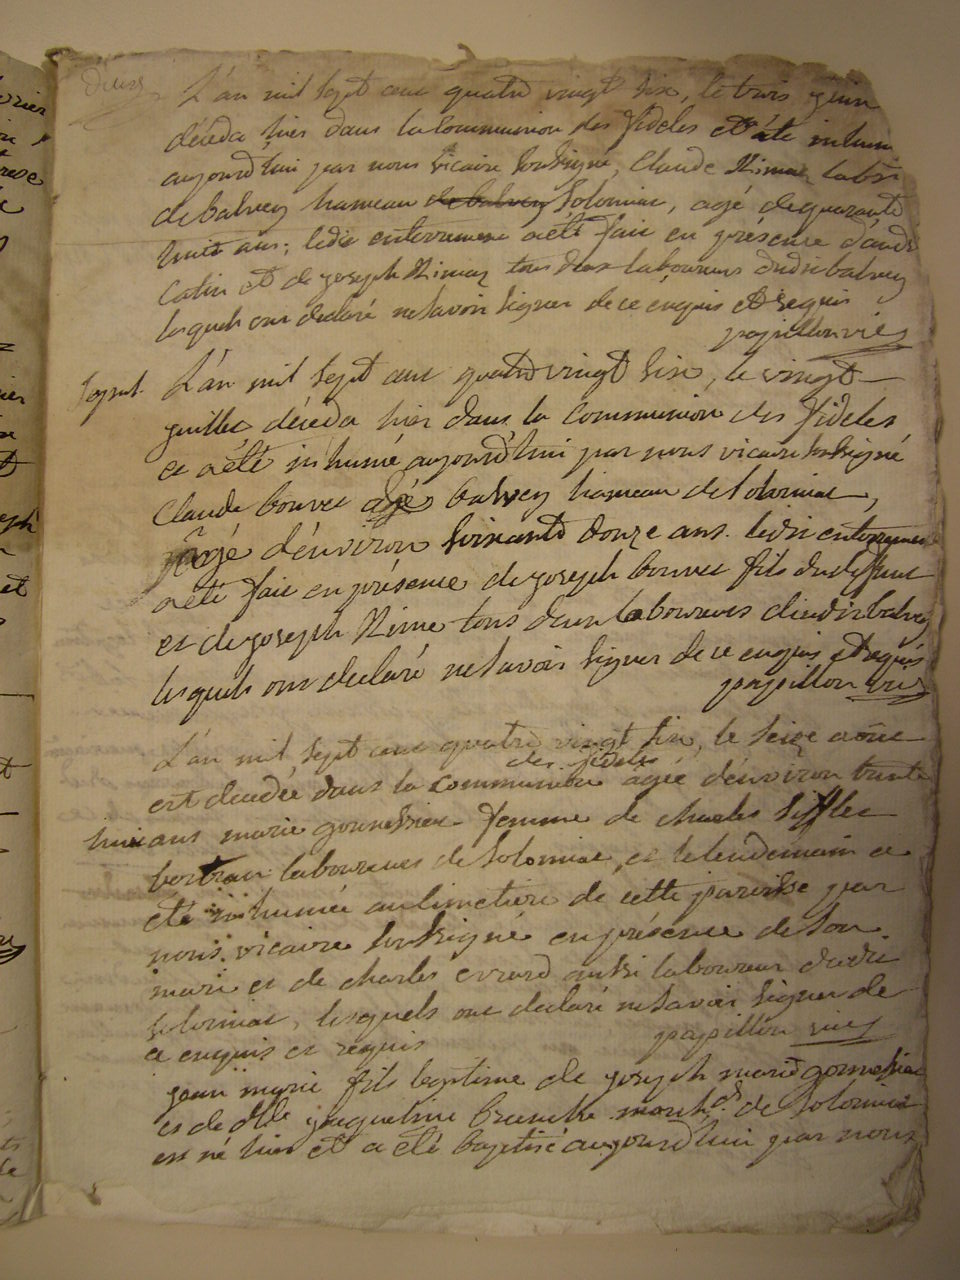 L'an mil sept cent quatre vingt six, le trois juin
déceda hier dans la communion des fideles et a été inhumé
aujourd'hui par nous vicaire soussigné, Claude
de balvey hameau de balvey Solomiac, agé de quarante
huit ans; ledit enterrement a été fait en présence d'
et de joseph tous deux laboureurs dudit balvey
lesquels ont declaré ne savoir signer de ce enquis et requis
papillon vic
L'an mil sept cent quatre vingt six, le vingt
juillet déceda hier dans la communion des fideles
et a été inhumé aujourd'hui par nous vicaire soussigné
Claude bouvet agé balvey hameau de Solomiac,
agé d'environ soixante douze ans. ledit enterrement
a été fait en présence de joseph bouvet fils du deffunt
et de joseph tous deux laboureurs dudit balvey
lesquels ont declaré ne savoir signer de ce enquis et requis
papillon vic
L'an mil sept cent quatre vingt six, le seize aout
des fideles
est decedée dans la communion agée d'environ trente
huit ans marie femme de charles
laboureur de Solomiac, et le lendemain a
été inhumée au cimetiere de cette paroisse par
nous vicaire soussigné en présence de son
mari et de charles evrard aussi laboureur dudit
Solomiac, lesquels ont declaré ne savoir signer de
ce enquis et requis papillon vic
jean marie fils legitime de joseph marie
et de jaqueline de Solomiac
est né hier et a été baptisé aujourd'hui par nous